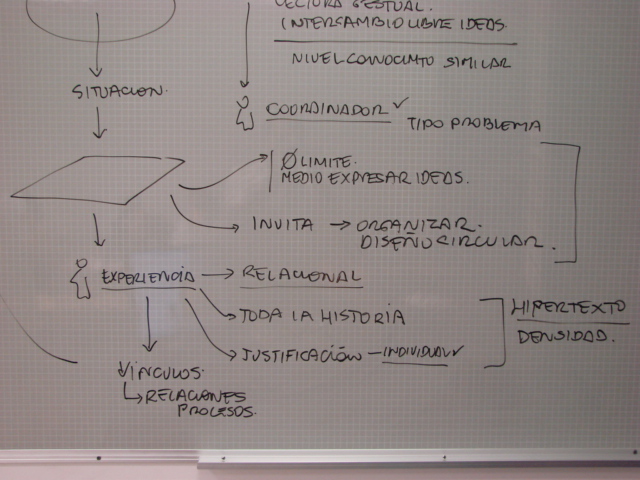 LECTURA GESTUAL.
INTERCAMBIO LIBRE IDEAS.
NIVEL CONOCIMTO SIMILAR
SITUACION.
COORDINADOR ✓
TIPO PROBLEMA
Ø LIMITE.
MEDIO EXPRESAR IDEAS.
INVITA → ORGANIZAR.
DISEÑO CIRCULAR.
EXPERIENCIA → RELACIONAL
TODA LA HISTORIA
HIPERTEXTO
DENSIDAD.
JUSTIFICACIÓN – INDIVIDUAL ✓
VÍNCULOS.
RELACIONES
PROCESOS.